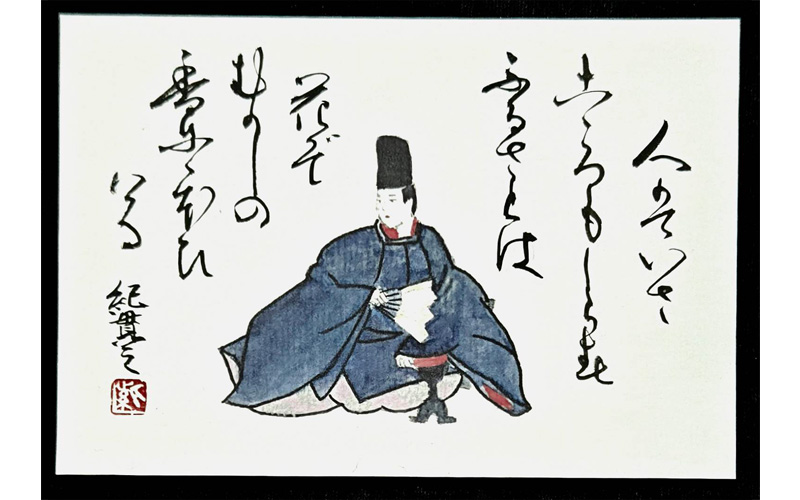 人はいさ
こゝろもしらす
ふるさとは
花ぞ
むかしの
香にゝほひ
ける
紀貫之